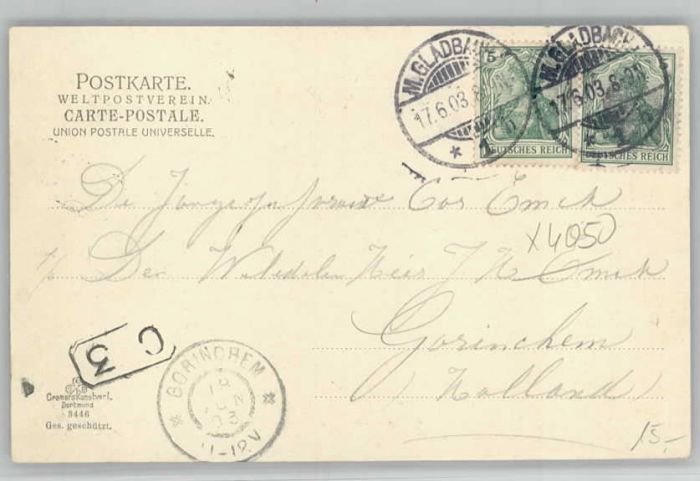 POSTKARTE.
WELTPOSTVEREIN.
CARTE-POSTALE.
UNION POSTALE UNIVERSELLE.
5 5
M.GLADBACH M.GLADBACH
17.6.03.8 17.6.03.8
1 b
DEUTSCHES REICH DEUTSCHES REICH
De Cor Emck
X4050
Den J N Emck
Gorinchem
Holland
C 3
GORINCHEM
18
JUN
03
11-12V
Cramers Kunstverl.
Dortmund
3446
Ges. geschützt.
15,-